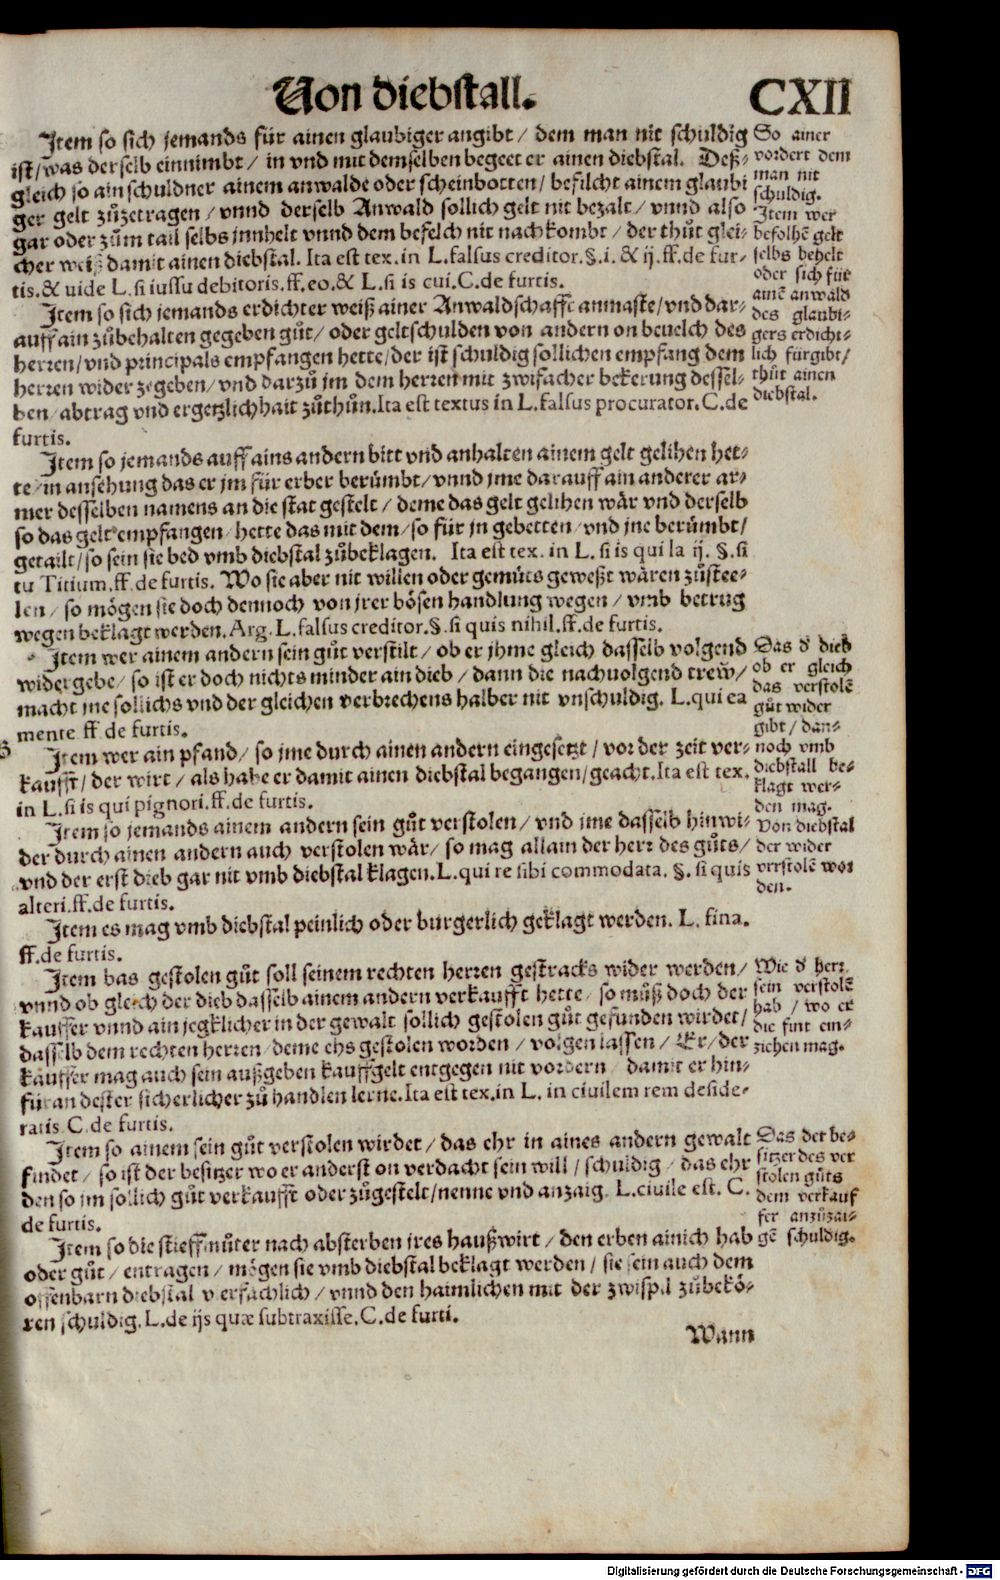 Von diebstall.
CXII
Item so sich jemands für ainen glaubiger angibt / dem man nit schuldig
ist / was derselb einnimbt / in vnd mit demselben begeet er ainen diebstal. Deß-
gleich so ain schuldner ainem anwalde oder scheinbotten / befilcht ainem glaubi
ger gelt zůzetragen / vnnd derselb Anwald sollich gelt nit bezalt / vnnd also
gar oder zům tail selbs jnnhelt vnnd dem befelch nit nachkombt / der thůt glei-
cher weiß damit ainen diebstal. Ita est tex. in L. falsus creditor. §. i. & ij. ff. de fur-
tis. & uide L. si iussu debitoris. ff. eo. & L. si is cui. C. de furtis.
Item so sich jemands erdichter weiß ainer Anwaldschafft anmaßte / vnd dar-
auff ain zůbehalten gegeben gůt / oder geltschulden von andern on beuelch des
herren / vnd principals empfangen hette / der ist schuldig sollichen empfang dem
herren wider zegeben / vnd darzů jm dem herren mit zwifacher bekerung dessel-
ben / abtrag vnd ergetzlichhait zůthůn. Ita est textus in L. falsus procurator. C. de
furtis.
Item so jemands auff ains andern bitt vnd anhalten ainem gelt gelihen het-
te / in ansehung das er jm für erber berümbt / vnnd jme darauff ain anderer ar-
mer desselben namens an die stat gestelt / deme das gelt gelihen wär vnd derselb
so das gelt empfangen / hette das mit dem / so für jn gebetten / vnd jne berümbt /
getailt / so sein sie bed vmb diebstal zůbeklagen. Ita est tex. in L. si is qui la ij. §. si
tu Titium. ff. de furtis. Wo sie aber nit willen oder gemüts geweßt wären zůstee-
len / so mögen sie doch dennoch von jrer bösen handlung wegen / vmb betrug
wegen beklagt werden. Arg. L. falsus creditor. §. si quis nihil. ff. de furtis.
Item wer ainem andern sein gůt verstilt / ob er jhme gleich dasselb volgend
widergebe / so ist er doch nichts minder ain dieb / dann die nachuolgend trew /
macht jne sollichs vnd der gleichen verbrechens halber nit vnschuldig. L. qui ea
mente ff. de furtis.
Item wer ain pfand / so jme durch ainen andern eingesetzt / vor der zeit ver-
kaufft / der wirt / als habe er damit ainen diebstal begangen / geacht. Ita est tex.
in L. si is qui pignori. ff. de furtis.
Item so jemands ainem andern sein gůt verstolen / vnd jme dasselb hinwi-
der durch ainen andern auch verstolen wär / so mag allain der herr des gůts /
vnd der erst dieb gar nit vmb diebstal klagen. L. qui re sibi commodata. §. si quis
alteri. ff. de furtis.
Item es mag vmb diebstal peinlich oder burgerlich geklagt werden. L. fina.
ff. de furtis.
Item das gestolen gůt soll seinem rechten herren gestracks wider werden /
vnnd ob gleich der dieb dasselb ainem andern verkaufft hette / so můß doch der
kauffer vnnd ain jegklicher in der gewalt sollich gestolen gůt gefunden wirdet /
dasselb dem rechten herren / deme ehs gestolen worden / volgen lassen / Er / der
kauffer mag auch sein außgeben kauffgelt entgegen nit vordern / damit er hin-
füran dester sicherlicher zů handlen lerne. Ita est tex. in L. in ciuilem rem deside-
ratis C. de furtis.
Item so ainem sein gůt verstolen wirdet / das ehr in aines andern gewalt
findet / so ist der besitzer wo er anderst on verdacht sein will / schuldig / das ehr
den so im sollich gůt verkaufft oder zůgestelt / nenne vnd anzaig. L. ciuile est. C.
de furtis.
Item so die stieffmůter nach absterben jres haußwirt / den erben ainich hab
oder gůt / entragen / mögen sie vmb diebstal beklagt werden / sie sein auch dem
offenbarn diebstal verfächlich / vnnd den haimlichen mit der zwispil zůbekö-
ren schuldig. L. de ijs quæ subtraxisse. C. de furti.
Wann
So ainer
vordert dem
man nit
schuldig.
Item wer
befolhē gelt
selbs behelt
oder sich für
ainē anwald
des glaubi-
gers erdicht-
lich fürgibt /
thůt ainen
diebstal.
Das d dieb
ob er gleich
das verstolē
gůt wider
gibt / dan-
noch vmb
diebstall be-
klagt wer-
den mag.
Von diebstal
der wider
verstolē wor
den.
Wie d herr
sein verstolē
hab / wo er
die fint ein-
ziehen mag.
Das der be-
sitzer des ver
stolen gůts
dem verkauf
fer anzůzai-
gē schuldig.
Digitalisierung gefördert durch die Deutsche Forschungsgemeinschaft - DFG